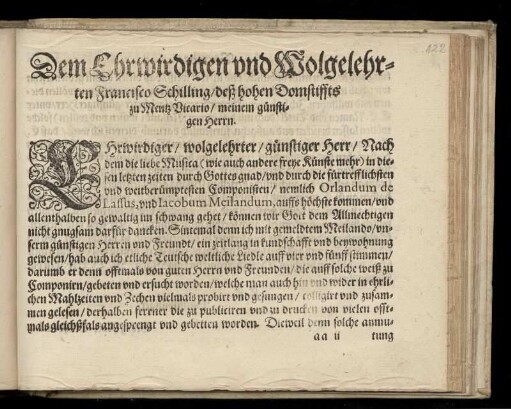 122
Dem Ehrwirdigen vnd Wolgelehr-
ten Francisco Schilling / deß hohen Domstiffts
zu Mentz Vicario / meinem günsti-
gen Herrn.
EHrwirdiger / wolgelehrter / günstiger Herr / Nach
dem die liebe Musica (wie auch andere freye Künste mehr) in die-
sen letzten zeiten durch Gottes gnad / vnd durch die fürtrefflichsten
vnd weitberümptesten Componisten / nemlich Orlandum de
Lassus, vnd Iacobum Meilandum, auffs höchste kommen / vnd
allenthalben so gewaltig im schwang gehet / können wir Gott dem Allmechtigen
nicht gnugsam darfür dancken. Sintemal denn ich mit gemeldtem Meilando / vn-
serm günstigen Herren vnd Freundt / ein zeitlang in kundschafft vnd beywohnung
gewesen / hab auch ich etliche Teutsche weltliche Liedle auff vier vnd fünff stimmen /
darumb er denn offtmals von guten Herrn vnd Freunden / die auff solche weiß zu
Componirn / gebeten vnd ersucht worden / welche man auch hin vnd wider in ehrli-
chen Mahlzeiten vnd Zechen vielmals probirt vnd gesungen / colligirt vnd zusam-
men gelesen / derhalben ferrner die zu publiciren vnd zu drucken von vielen offt-
mals gleichßfals angesprengt vnd gebetten worden. Dieweil denn solche anmu-
aa ii tung